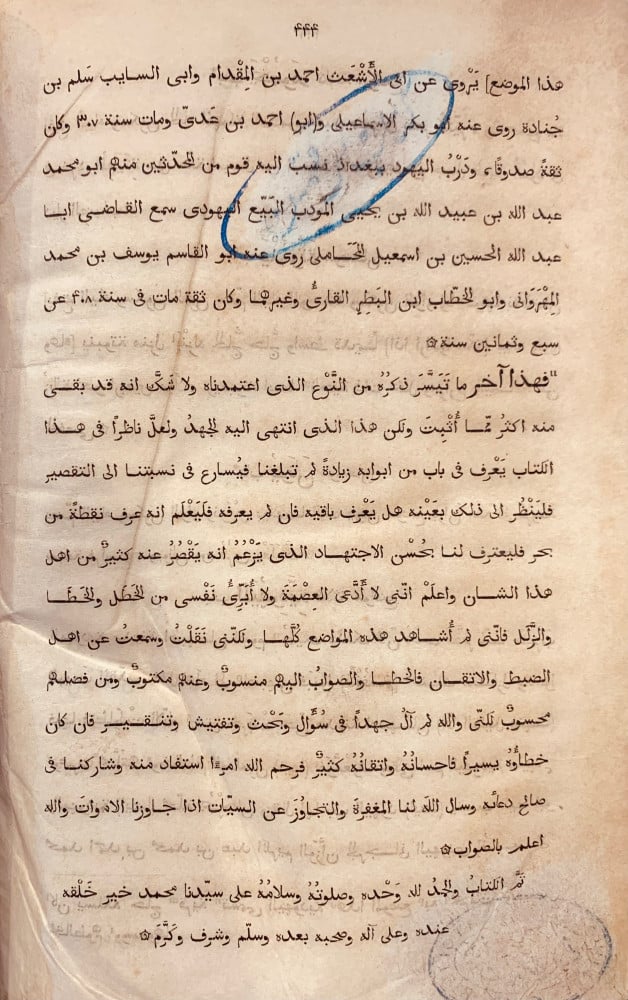 ۴۴۴
هذا الموضع] يَرْوى عن ابى الأَشْعَث احمد بن المِقْدام وابى السايب سَلم بن
جُنادة روى عنه ابو بكر الاسماعيلى و(ابو) احمد بن عَدىّ ومات سنة ٣٠٧ وكان
ثقةً صدوقًا، ودَرْبُ اليهود ببغداد نسب اليه قوم من المحدّثين منهم ابو محمد
عبد الله بن عبيد الله بن يحيى المودب البَيّع اليهودى سمع القاضى ابا
عبد الله الحسين بن اسمعيل المحاملى روى عنه ابو القاسم يوسف بن محمد
المِهْرَوانى وابو الخطّاب ابن البَطِر القارئُ وغيرهما وكان ثقة مات فى سنة ۴٠٨ عن
سبع وثمانين سنة ۞
"فهذا آخر ما تَيَسَّر ذكرُه من النَّوْع الذى اعتمدناه ولا شَكَّ انه قد بقى
منه اكثرُ ممّا أُثْبِتَ ولكن هذا الذى انتهى اليه الجهدُ ولعلَّ ناظراً فى هذا
الكتاب يَعْرف فى باب من ابوابه زيادةً لم تبلغنا فيُسارع فى نسبتنا الى التقصير
فليَنْظُر الى ذلك بعَيْنه هل يَعْرف باقيه فان لم يعرفه فليَعْلَم انه عرف نقطةً من
بحر فليعترف لنا بحُسْن الاجتهاد الذى يَزْعُمُ انه يَقْصُرُ عنه كثيرٌ من اهل
هذا الشان واعلَمْ انّنى لا أَدَّعى العِصْمَةَ ولا أُبَرِّىُ نَفْسى من الخَطَل والخَطَا
والزَّلَل فانّنى لم أُشاهد هذه المواضع كُلَّها ولكنّنى نَقَلْتُ وسمعتُ عن اهل
الضبط والاتقان فالخطا والصوابُ اليهم منسوبٌ وعنهم مكتوبٌ ومن فضلهم
محسوبٌ لكنّى والله لم آلُ جهداً فى سُؤَال وبَحْث وتفتيش وتنقير فان كان
خطأُوُه يسيراً فاحسانُهُ واتقانُهُ كثيرٌ فرحم الله امرءًا استفاد منه وشاركنا فى
صالح دعائه وسال اللهَ لنا المغفرةَ والتجاوُزَ عن السيّات اذا جاوزنا الاموات والله
اعلم بالصواب ۞
تَمَّ الكتابُ والحمدُ لله وَحْده وصلوتُهُ وسلامُهُ على سيّدنا محمد خير خَلْقه
عنده وعلى آله وصحبه بعده وسلّم وشرف وكَرَّمَ ۞